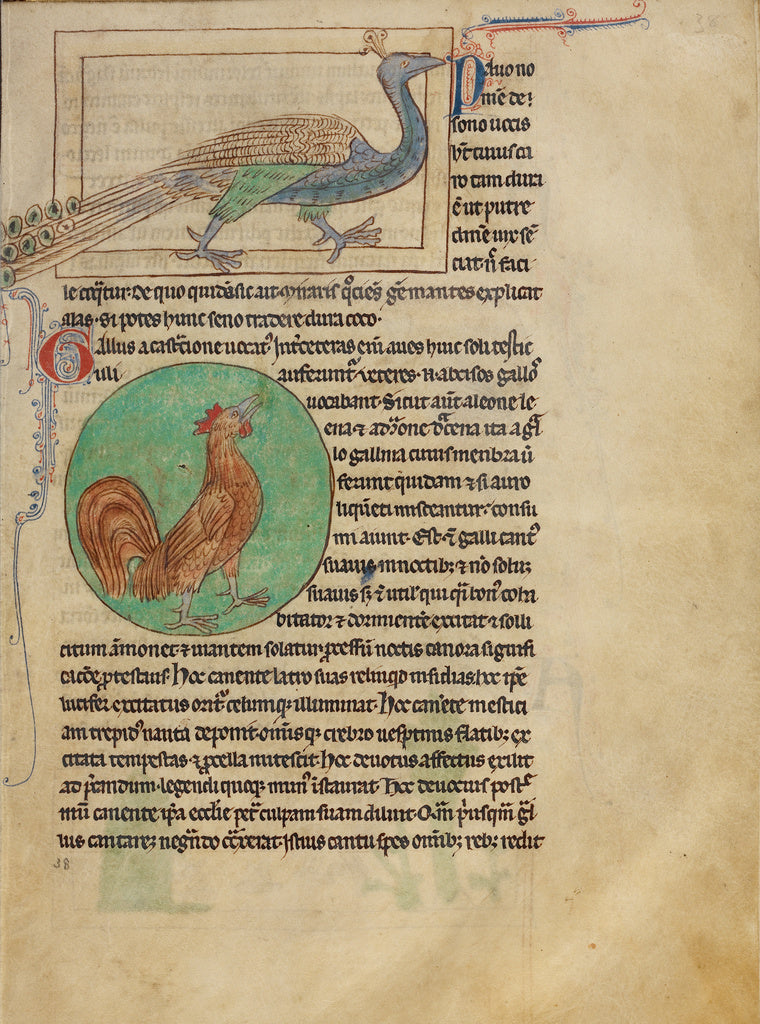 38
Pauo no
m̃e de
sono uocis
h̃t cuius ca
ro tam dura
ẽ ut putre
dinẽ uix sẽ
ciat ñ faci
le coq̃tur. De quo quidã sic ait. Miraris q̃ciẽs gẽmantes explicat
alas. Si potes hunc seuo tradere dura coco.
Gallus a castc̃ione uocat᷑. Int̃ ceteras em̃ aues huic soli testic
uli auferunt᷑. Veteres .n. abcisos gallos
uocabant. Sicut aut̃ a leone le
ena ⁊ a dr̃one dr̃cena ita a ga
lo gallina cuius menbra ũ
ferunt quidam ⁊ si auro
liquẽti misceantur. consu
mi aiunt. Est ⁊ galli cant᷒
suauis in noctib; ⁊ nõ solũ
suauis s; ⁊ util' qui q̃i bon᷒ coha
bitator ⁊ dormientẽ excitat ⁊ solli
citum ãmonet ⁊ uiantem solatur. ꝓcessũ noctis canora signifi
cac̃oe ꝓtestans. Hoc canente latro suas relinq̃d insidias. hoc ip̃e
lucifer excitatus orit᷑ celumq; illuminat. Hoc canẽte mestici
am trepid᷒ nauta deponit. omisq; crebro uespertinis flatib; ex
citata tempestas ⁊ ꝓcella mitescit. hoc deuotus affectus exilit
ad p̃candum. legendi quoq; mun᷒ ĩstaurat. Hoc
canente ip̃a ecctĩe pet̃ culpam suam diluit. Q̃m p̃usq̃m gal
lus cantaret negãdo
Istius cantu spes omib; redit
38